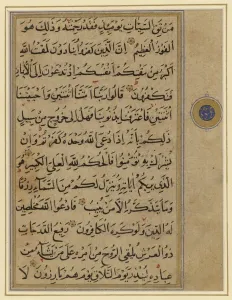 مَن تَقِ السَّيِّئَاتِ يَوْمَئِذٍ فَقَدْ رَحِمْتَهُ وَذَلِكَ هُوَ
الْفَوْزُ الْعَظِيمُ إِنَّ الَّذِينَ كَفَرُوا يُنَادَوْنَ لَمَقْتُ اللَّهِ
أَكْبَرُ مِن مَّقْتِكُمْ أَنفُسَكُمْ إِذْ تُدْعَوْنَ إِلَى الْإِيمَانِ
فَتَكْفُرُونَ قَالُوا رَبَّنَا أَمَتَّنَا اثْنَتَيْنِ وَأَحْيَيْتَنَا
اثْنَتَيْنِ فَاعْتَرَفْنَا بِذُنُوبِنَا فَهَلْ إِلَى خُرُوجٍ مِّن سَبِيلٍ
ذَلِكُم بِأَنَّهُ إِذَا دُعِيَ اللَّهُ وَحْدَهُ كَفَرْتُمْ وَإِن
يُشْرَكْ بِهِ تُؤْمِنُوا فَالْحُكْمُ لِلَّهِ الْعَلِيِّ الْكَبِيرِ هُوَ
الَّذِي يُرِيكُمْ آيَاتِهِ وَيُنَزِّلُ لَكُم مِّنَ السَّمَاءِ رِزْقًا
وَمَا يَتَذَكَّرُ إِلَّا مَن يُنِيبُ فَادْعُوا اللَّهَ مُخْلِصِينَ
لَهُ الدِّينَ وَلَوْ كَرِهَ الْكَافِرُونَ رَفِيعُ الدَّرَجَاتِ
ذُو الْعَرْشِ يُلْقِي الرُّوحَ مِنْ أَمْرِهِ عَلَى مَن يَشَاءُ مِنْ
عِبَادِهِ لِيُنذِرَ يَوْمَ التَّلَاقِ يَوْمَ هُم بَارِزُونَ لَا